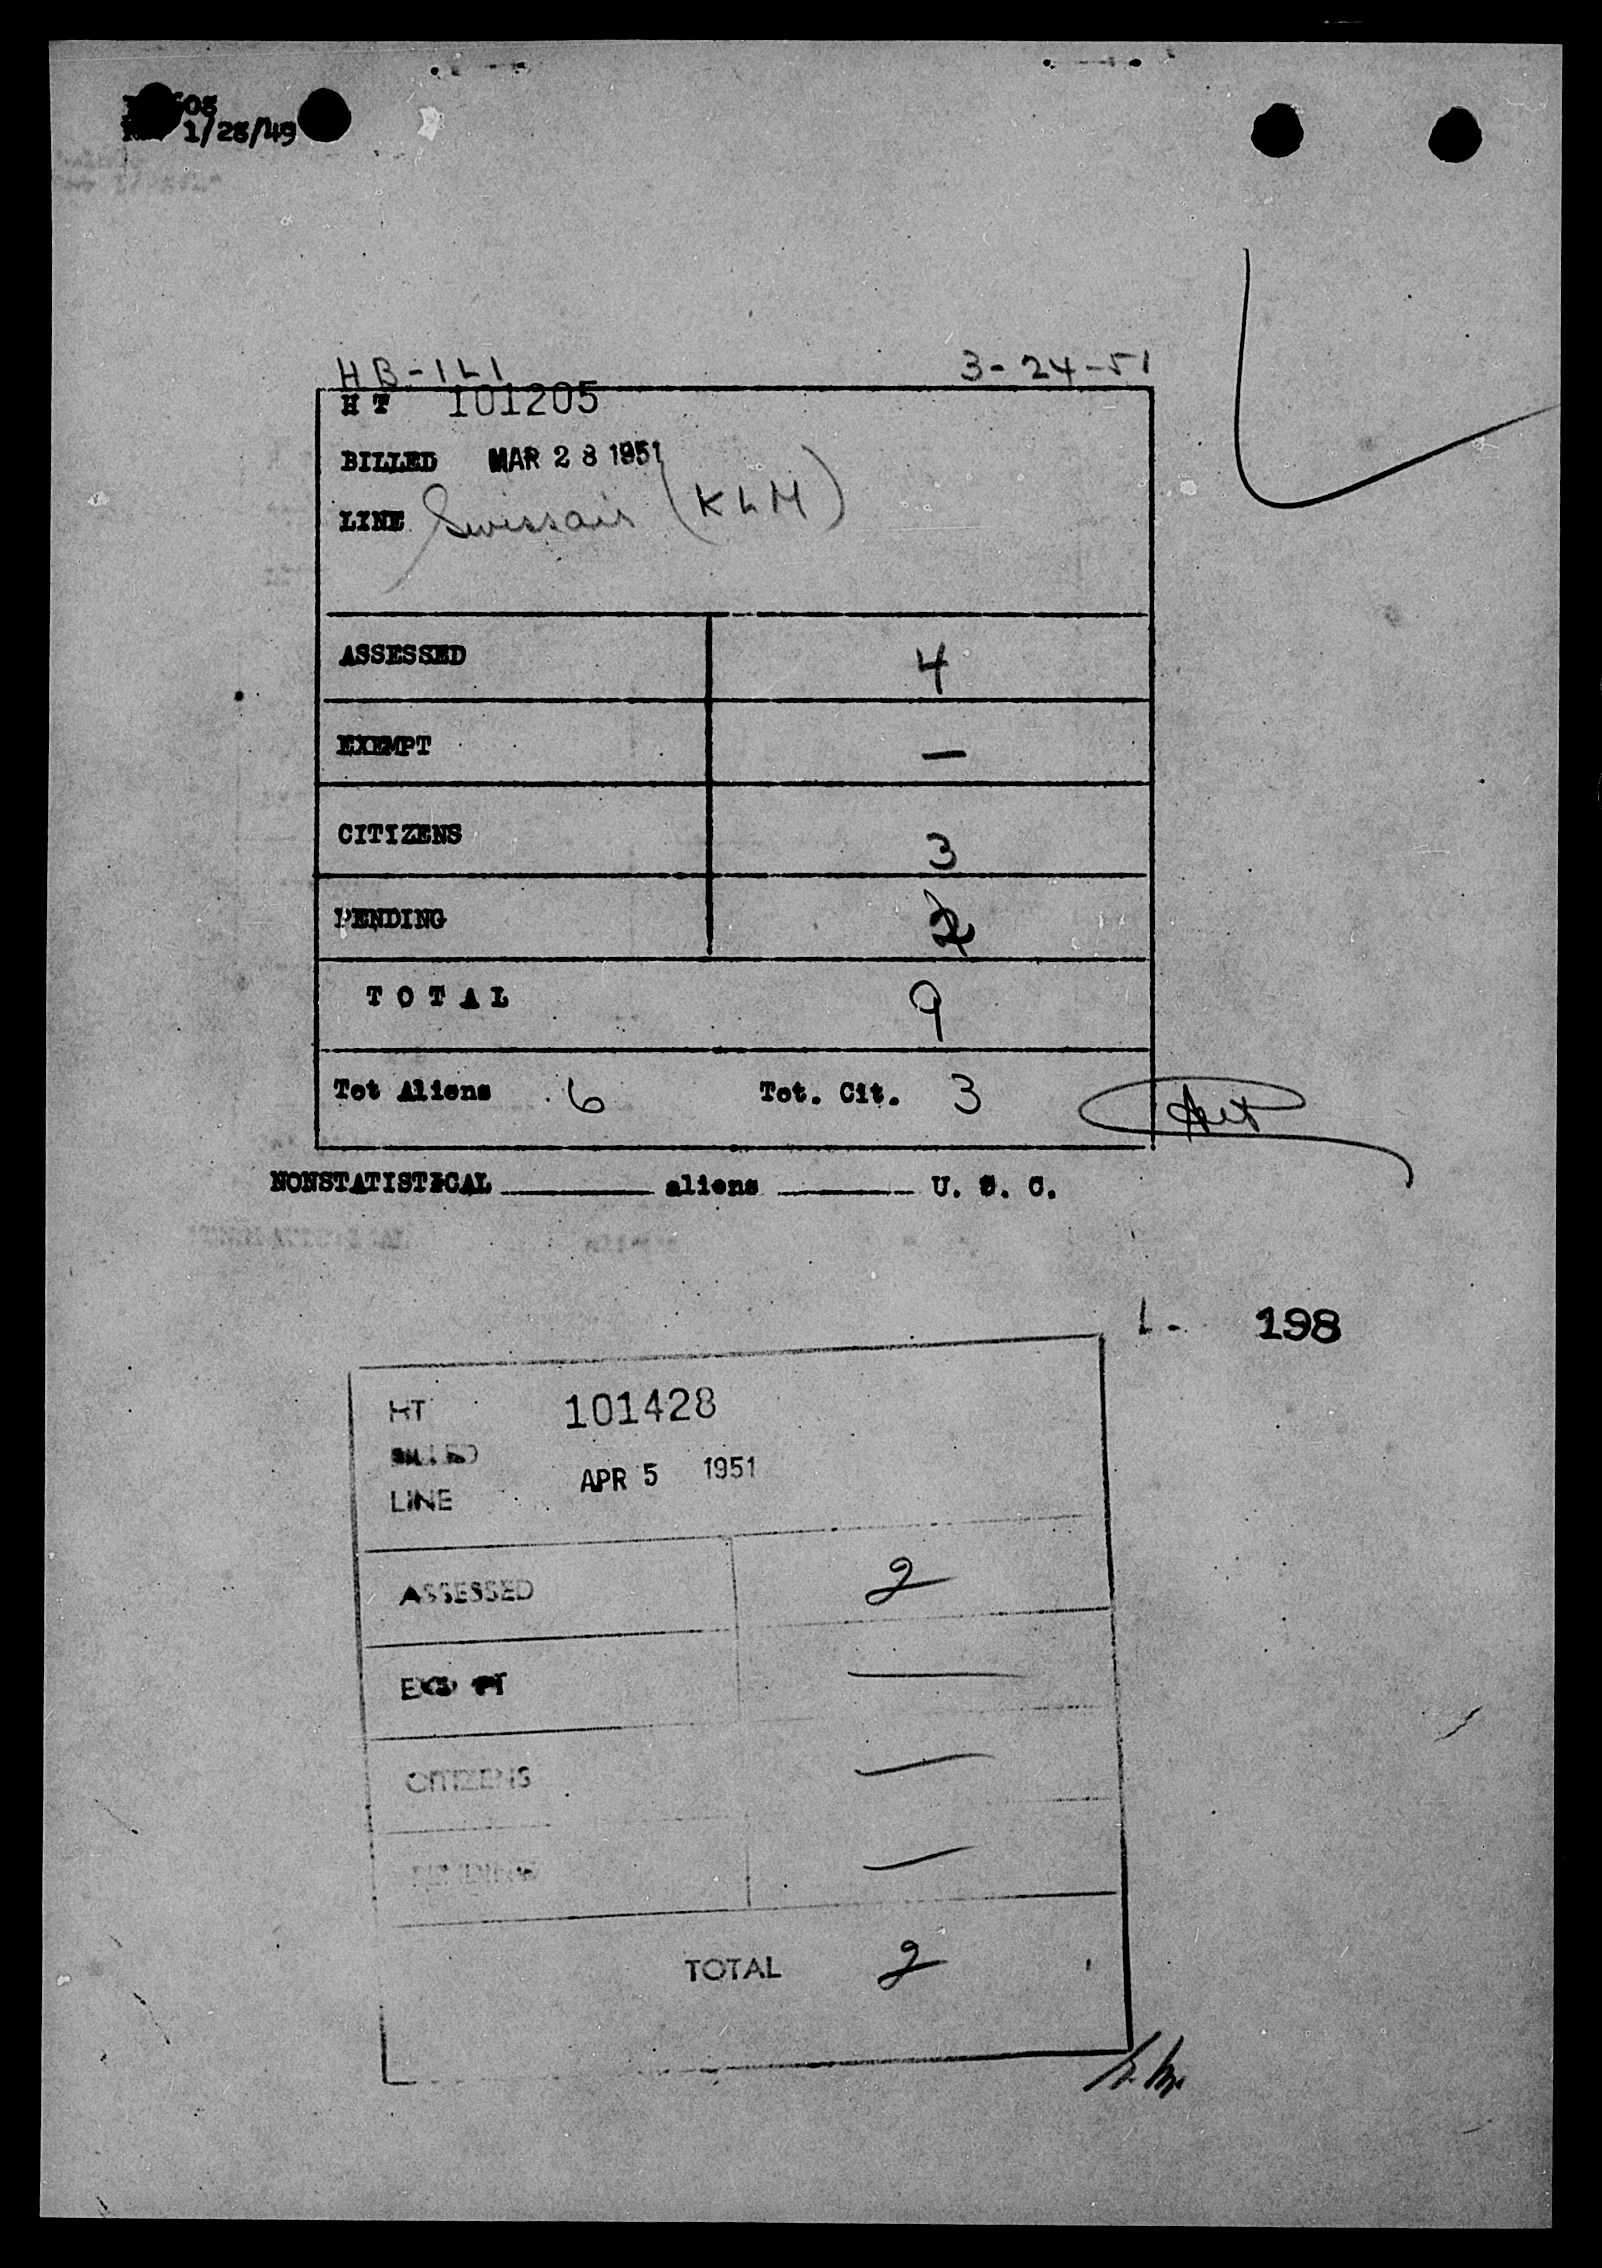 1/28/49
HB-ILI 3-24-51
HT 101205
BILLED MAR 28 1951
LINE Swissair (KLM)
ASSESSED 4
EXEMPT —
CITIZENS 3
PENDING 2
TOTAL 9
Tot Aliens 6 Tot. Cit. 3
NONSTATISTICAL ______ aliens ______ U. S. C.
198
HT 101428
BILLED
APR 5 1951
LINE
ASSESSED 2
EXEMPT —
CITIZENS —
PENDING —
TOTAL 2